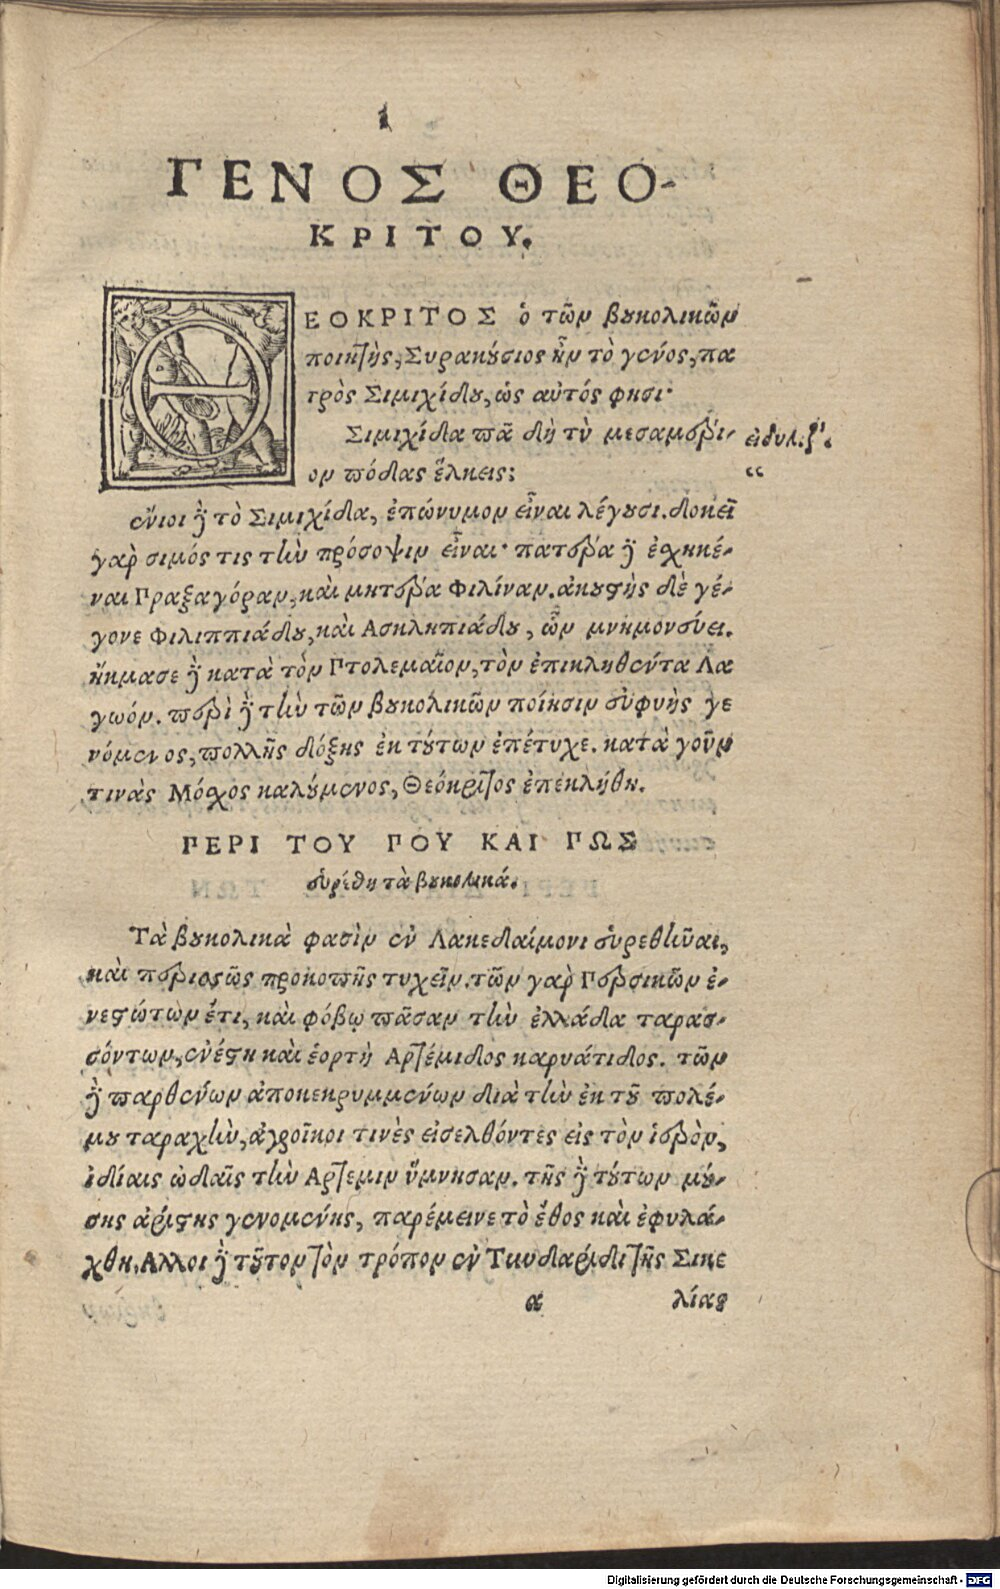 1
ΓΕΝΟΣ ΘΕΟ-
ΚΡΙΤΟΥ.
ΘΕΟΚΡΙΤΟΣ ὁ τῶν βουκολικῶν
ποιητὴς, Συρακούσιος ἦν τὸ γένος, πα
τρὸς Σιμιχίδου, ὡς αὐτός φησι·
Σιμιχίδα πᾶ δὴ τὺ μεσαμέρι-
ον πόδας ἕλκεις;
εἰδυλ. ζ΄.
“
ἔνιοι δὲ τὸ Σιμιχίδα, ἐπώνυμον εἶναι λέγουσι. δοκεῖ
γὰρ σιμός τις τὴν πρόσοψιν εἶναι· πατέρα δὲ ἐσχηκέ-
ναι Πραξαγόραν, καὶ μητέρα Φιλίναν. ἀκουστὴς δὲ γέ-
γονε Φιλιππιάδου, καὶ Ασκληπιάδου, ὧν μνημονεύει.
ἤκμασε δὲ κατὰ τὸν Πτολεμαῖον, τὸν ἐπικληθέντα Λα
γωόν. περὶ δὲ τὴν τῶν βουκολικῶν ποίησιν εὐφυὴς γε
νόμενος, πολλῆς δόξης ἐκ τούτων ἐπέτυχε. κατὰ γοῦν
τινὰς Μόσχος καλούμενος, Θεόκριτος ἐπεκλήθη.
ΠΕΡΙ ΤΟΥ ΠΟΥ ΚΑΙ ΠΩΣ
εὑρέθη τὰ βουκολικά.
Τὰ βουκολικὰ φασὶν ἐν Λακεδαίμονι εὑρεθῆναι,
καὶ περισσῶς προκοπῆς τυχεῖν. τῶν γὰρ Περσικῶν ἐ-
νεστώτων ἔτι, καὶ φόβῳ πᾶσαν τὴν ἑλλάδα ταρασ-
σόντων, ἐνέστη καὶ ἑορτὴ Αρτέμιδος καρυάτιδος. τῶν
δὲ παρθένων ἀποκεκρυμμένων διὰ τὴν ἐκ τοῦ πολέ-
μου ταραχὴν, ἀγροῖκοι τινὲς εἰσελθόντες εἰς τὸν ἱερὸν,
ἰδίαις ὠδαῖς τὴν Αρτεμιν ὕμνησαν. τῆς δὲ τούτων μού-
σης ἀρίστης γενομένης, παρέμεινε τὸ ἔθος καὶ ἐφυλά-
χθη. Αλλοι δὲ τοῦτον τὸν τρόπον ἐν Τυνδαρίδι τῆς Σικε
α λίας